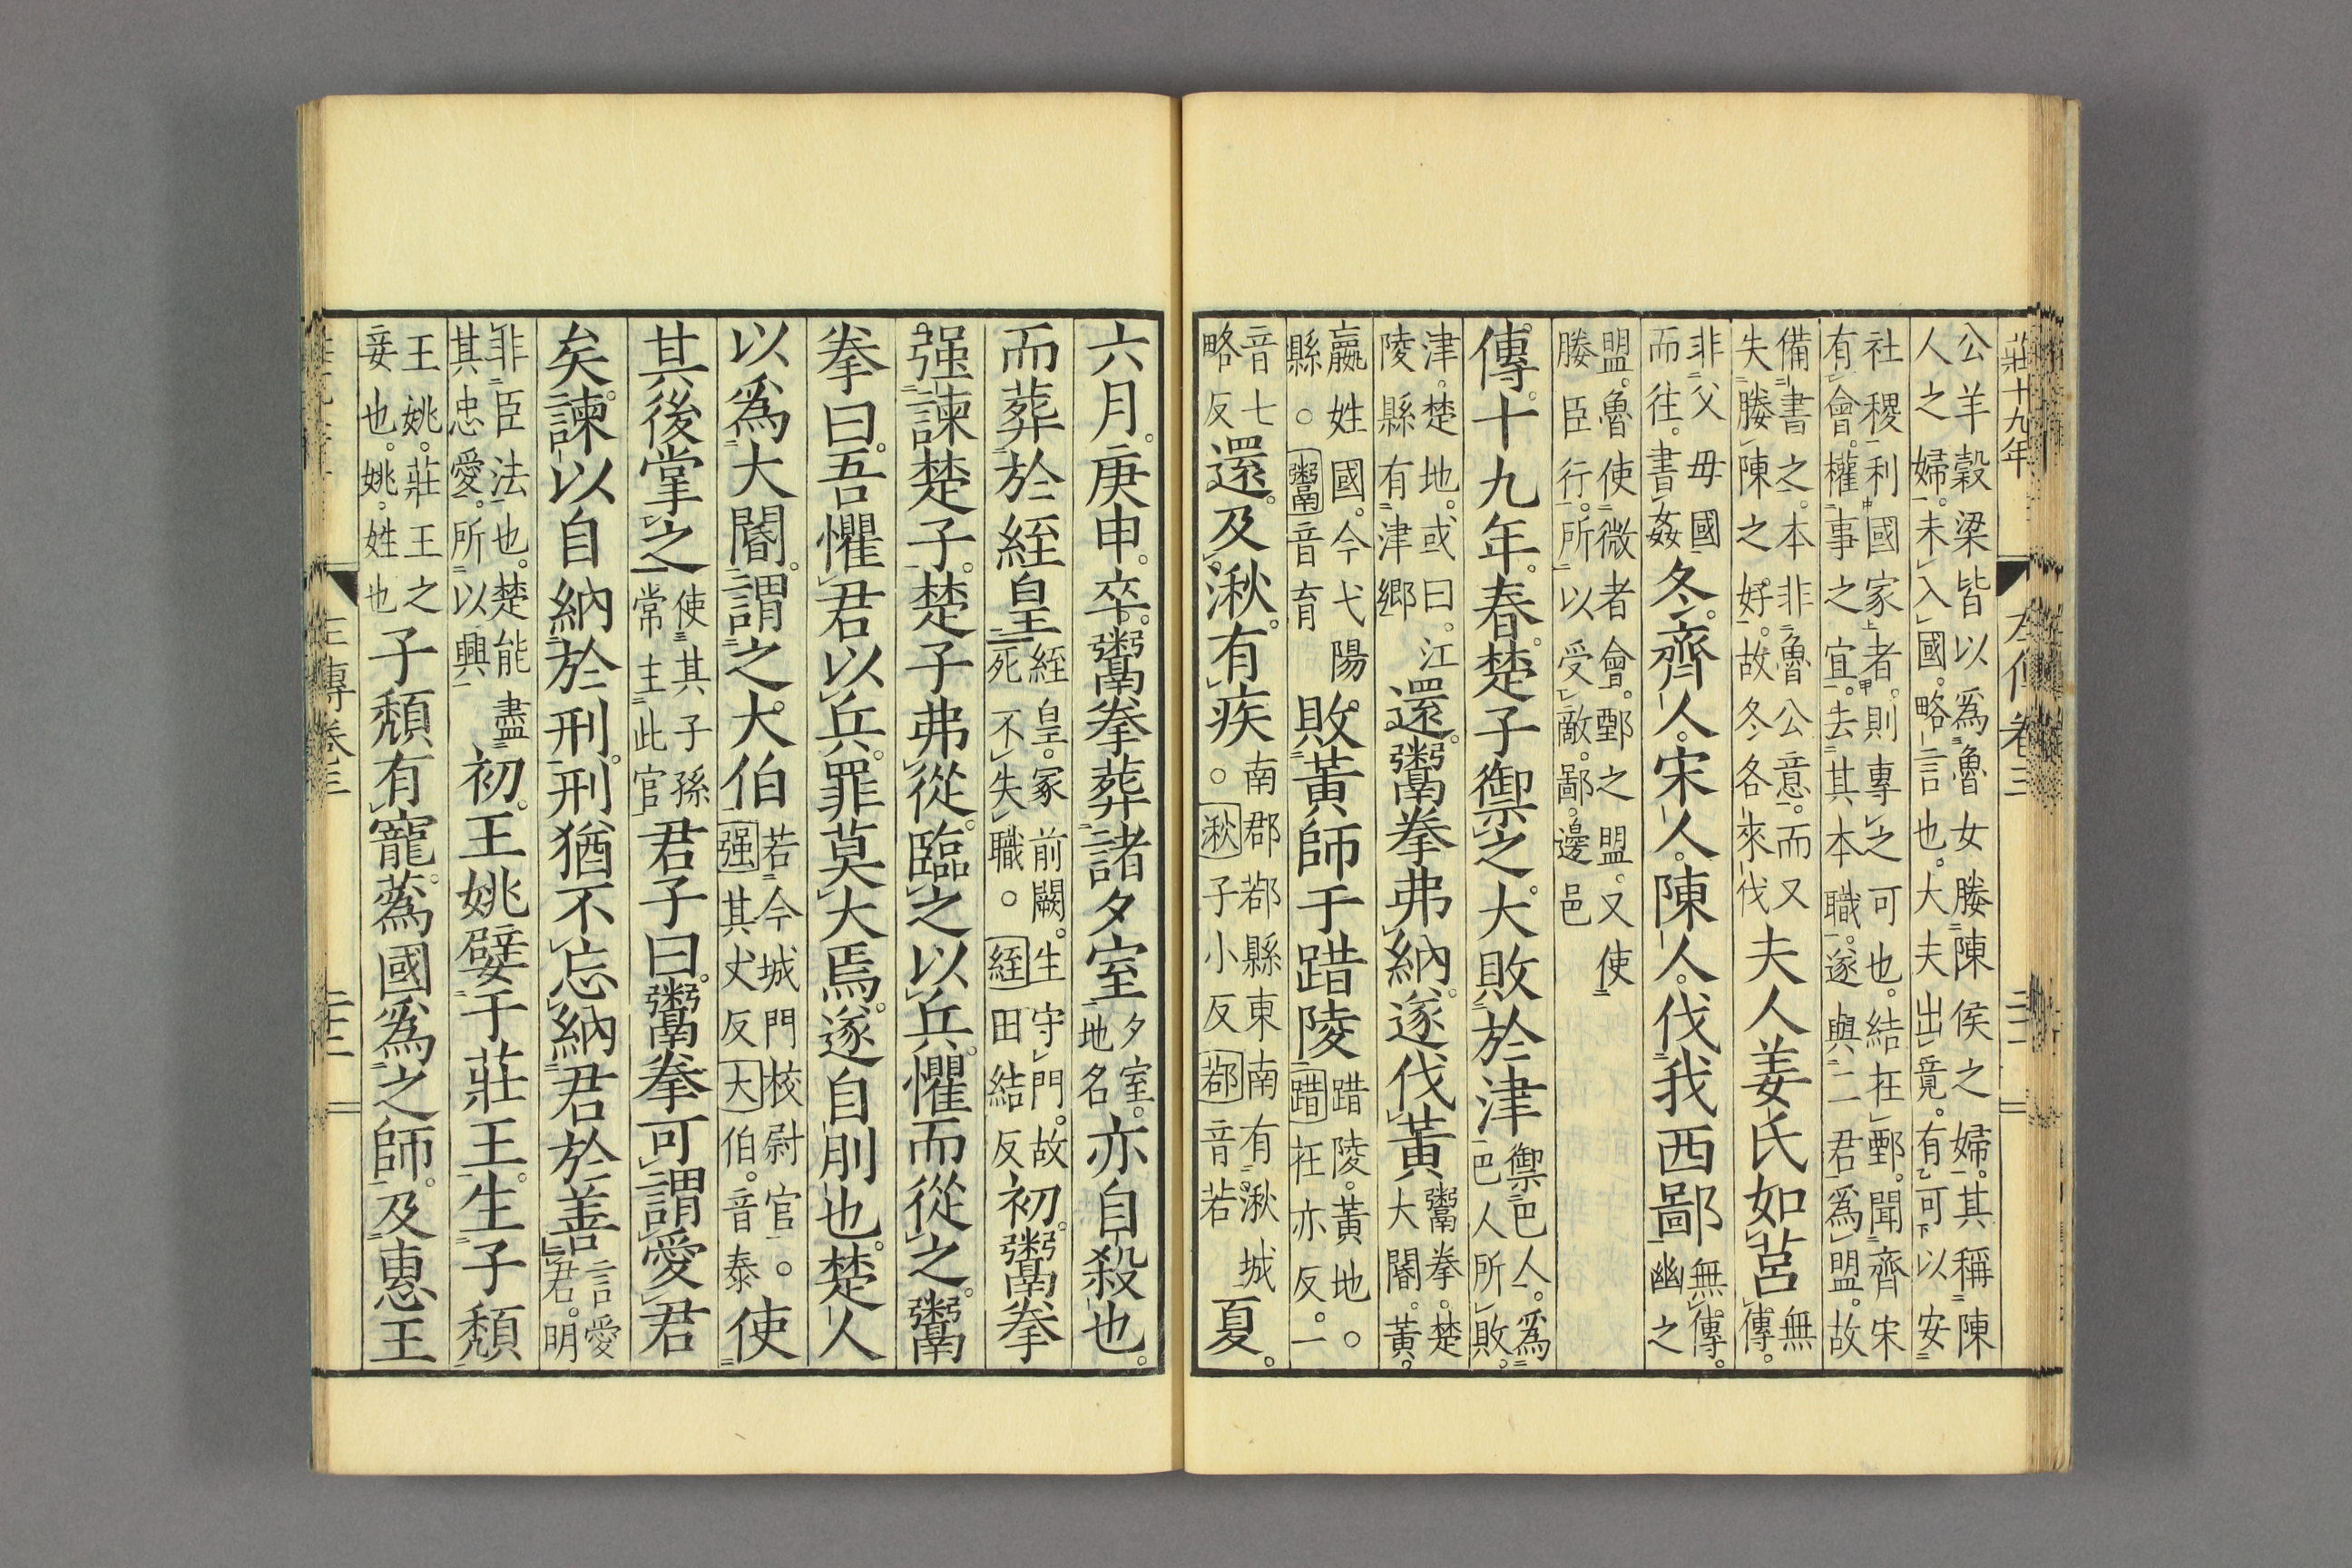 莊十九年
公羊穀梁皆以爲魯女媵陳侯之婦。其稱陳
人之婦。未入國。略言也。大夫出竟。有可以安
社稷利國家者。則專之可也。結在鄄。聞齊宋
有會。權事之宜。去其本職。遂與二君爲盟。故
備書之。本非魯公意。而又失媵陳之好。故冬各來伐夫人姜氏如莒無傳。
非父母國而往。書姦冬。齊人。宋人。陳人。伐我西鄙無傳。幽之
盟。魯使微者會。鄄之盟。又使
媵臣行。所以受敵。鄙。邊邑
傳。十九年。春。楚子禦之。大敗於津禦巴人。爲巴人所敗。
津。楚地。或曰。江陵縣有津鄉還。鬻拳弗納。遂伐黃鬻拳。楚大閽。黃。
嬴姓國。今弋陽縣。鬻音育敗黃師于踖陵踖陵。黃地。踖在亦反。一
音七略反還。及湫。有疾南郡鄀縣東南有湫城。湫子小反鄀音若夏。
六月。庚申。卒。鬻拳葬諸夕室夕室。地名亦自殺也。
而葬於絰皇絰皇。冢前闕。生守門。故死不失職。絰田結反初。鬻拳
强諫楚子。楚子弗從。臨之以兵。懼而從之。鬻
拳曰。吾懼君以兵。罪莫大焉。遂自刖也。楚人
以爲大閽。謂之大伯若今城門校尉官。强其丈反大伯。音泰使
其後掌之使其子孫常主此官君子曰。鬻拳可謂愛君
矣。諫以自納於刑。刑猶不忘納君於善言愛君。明
非臣法也。楚能盡其忠愛。所以興初。王姚嬖于莊王。生子頽
王姚。莊王之妾也。姚。姓也子頽有寵。蔿國爲之師。及惠王